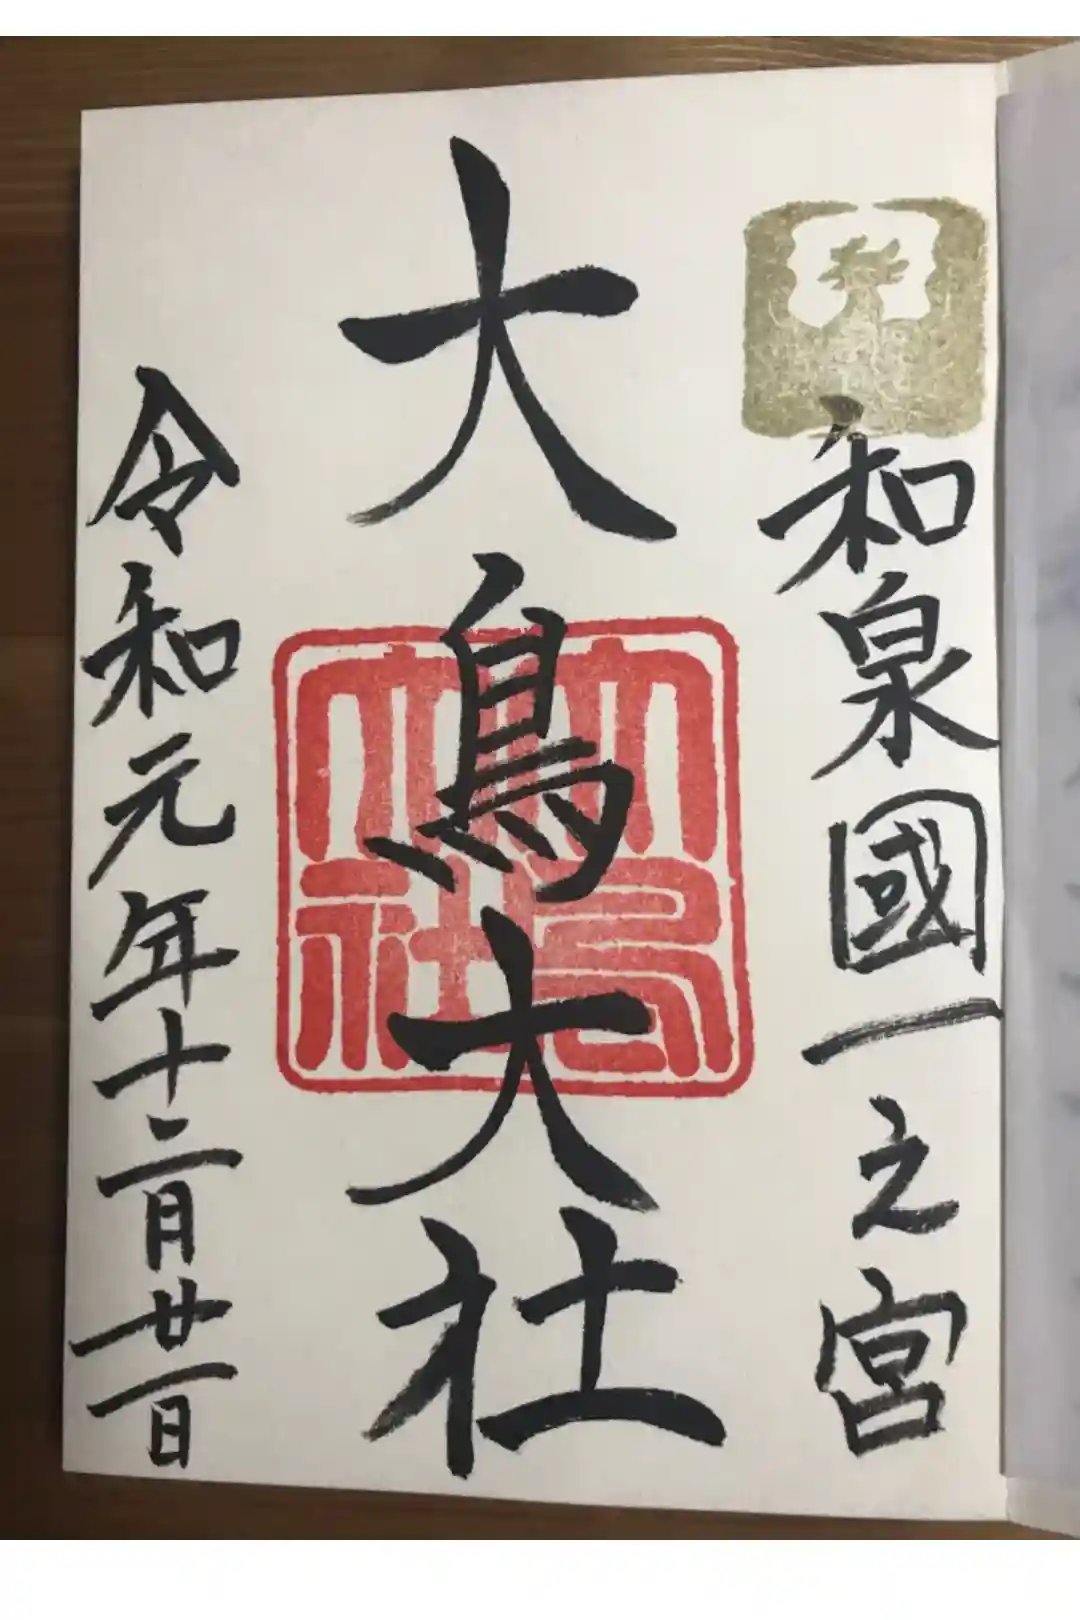 和泉國一之宮
大鳥大社
大鳥大社
令和元年十二月廿一日